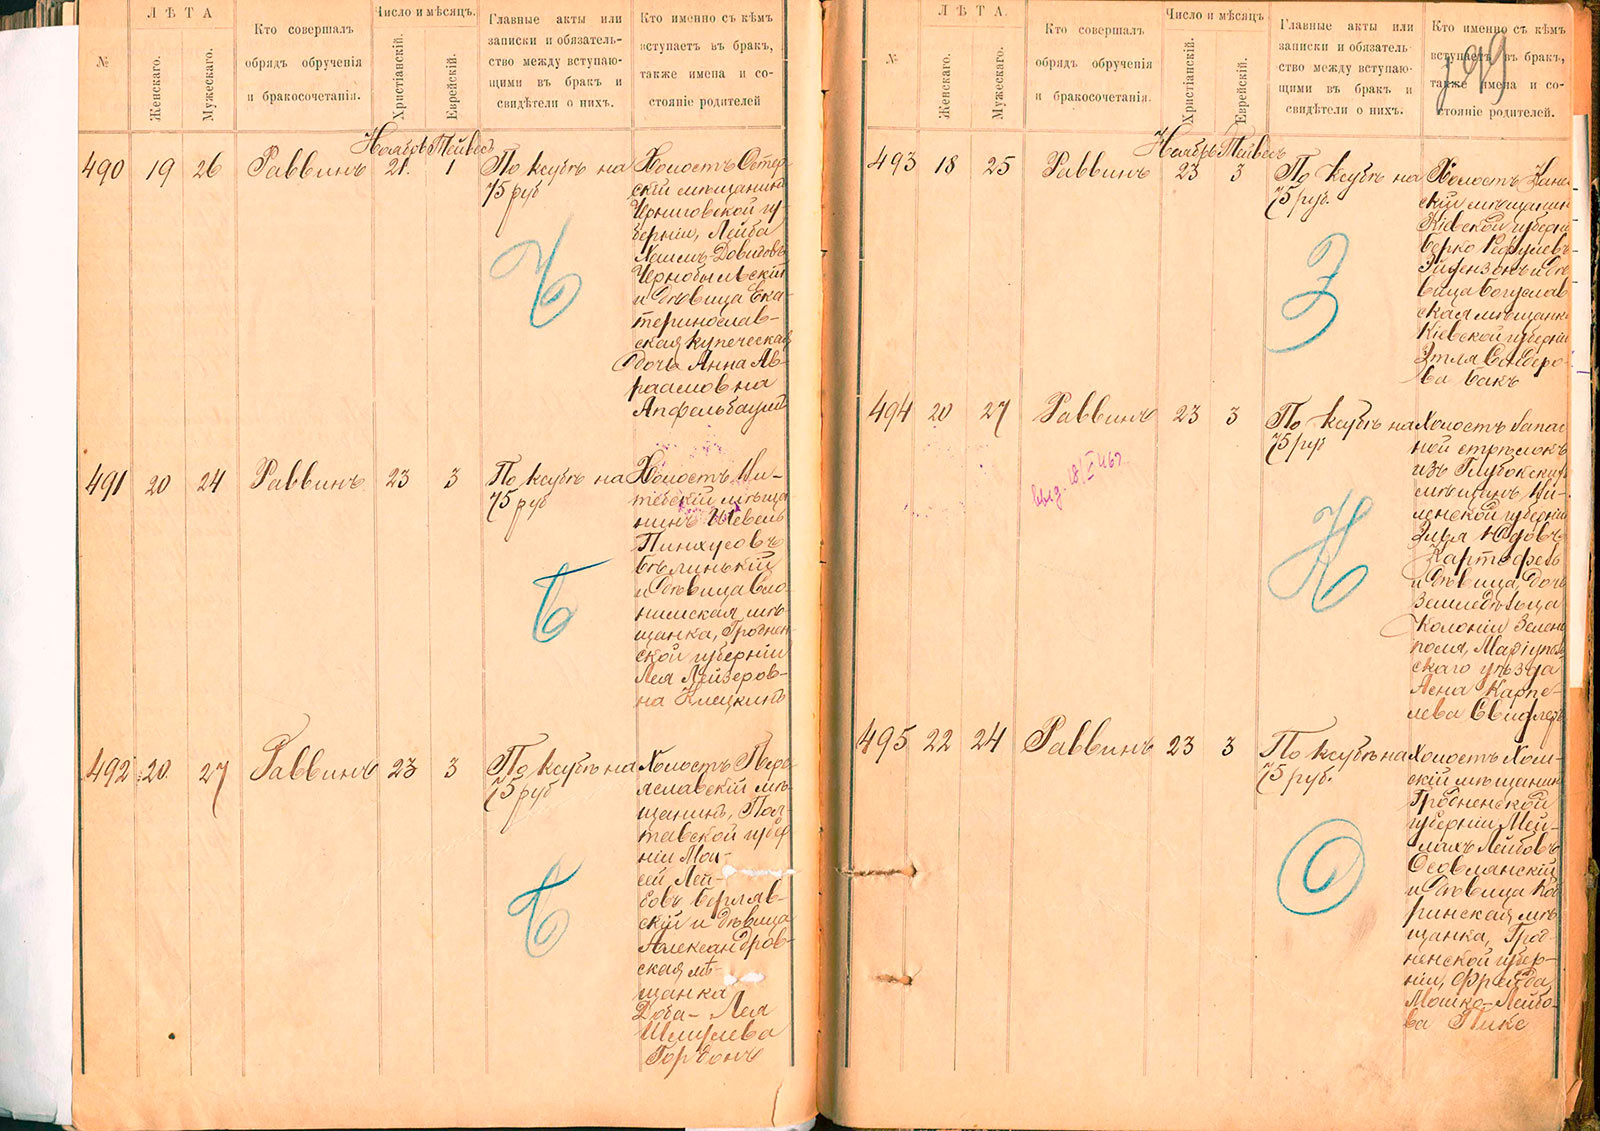 №
ЛѢТА
Женскаго.
Мужескаго.
Кто совершалъ
обрядъ обрученія
и бракосочетанія.
Число и мѣсяцъ.
Христіанскій.
Еврейскій.
Главные акты или
записки и обязатель-
ство между вступаю-
щими въ бракъ и
свидѣтели о нихъ.
Кто именно съ кѣмъ
вступаетъ въ бракъ,
также имена и со-
стояніе родителей
Ноябрь Тейвесъ
490 19 26 Раввинъ 21. 1 По ксубѣ на
75 руб
Холостъ Остер-
скій мѣщанинъ
Черниговской гу-
берніи, Лейба
Довидовъ
Чернобыльскій
и дѣвица Ека-
теринослав-
ская купеческая
дочь Анна Ав-
раамовна
Ч
491 20 24 Раввинъ 23 3 По ксубѣ на
75 руб
Холостъ Ви-
тебскій мѣща
нинъ Шевель
Пинхусовъ
Бѣлинькій
и дѣвица Сло-
нимская мѣ-
щанка, Гроднен-
ской губерніи
Лея Лейзеров-
на Клецкинъ
Б
492 20. 27 Раввинъ 23 3 По ксубѣ на
75 руб
Холостъ Пере-
яславскій мѣ-
щанинъ, Пол-
тавской губер
ніи Мои-
сей Лей-
бовъ Берляв-
скій и дѣвица
Александров-
ская мѣ-
щанка
Доба-Лея
Шмулева
Гордонъ
Б
199
№
ЛѢТА.
Женскаго.
Мужескаго.
Кто совершалъ
обрядъ обрученія
и бракосочетанія.
Число и мѣсяцъ.
Христіанскій.
Еврейскій.
Главные акты или
записки и обязатель-
ство между вступаю-
щими въ бракъ и
свидѣтели о нихъ.
Кто именно съ кѣмъ
вступаетъ въ бракъ,
также имена и со-
стояніе родителей.
Ноябрь Тейвесъ
493 18 25 Раввинъ 23 3 По ксубѣ на
75 руб.
Холостъ Кане
скій мѣщанин
Кіевской губерни
Берко
Зейфензонъ и дѣ
вица Богуслав
ская мѣщанка
Кіевской губерніи
Этля Сендеро-
ва Бакъ
З
494 20 27 Раввинъ 23 3 По ксубѣ на
75 руб
Холостъ запас
ной стрѣлокъ
изъ Глубокских
мѣщанъ, Ви-
ленской губерніи
Зилья Юдовъ
Картофель
и дѣвица, дочь
земледѣльца
колоніи Зелено
поля, Маріуполь
скаго уѣзда
Карпе-
лева
Н
выд. 18/V 46г.
495 22 24 Раввинъ 23 3 По ксубѣ на
75 руб.
Холостъ
скій мѣщанин
Гродненской
губерніи Мей-
лахъ Лейбовъ
Осовлянскій
и дѣвица Коб
ринская мѣ-
щанка, Грод-
ненской губер-
ніи, Фрейда
Мошко-Лейбо-
ва Пике
О